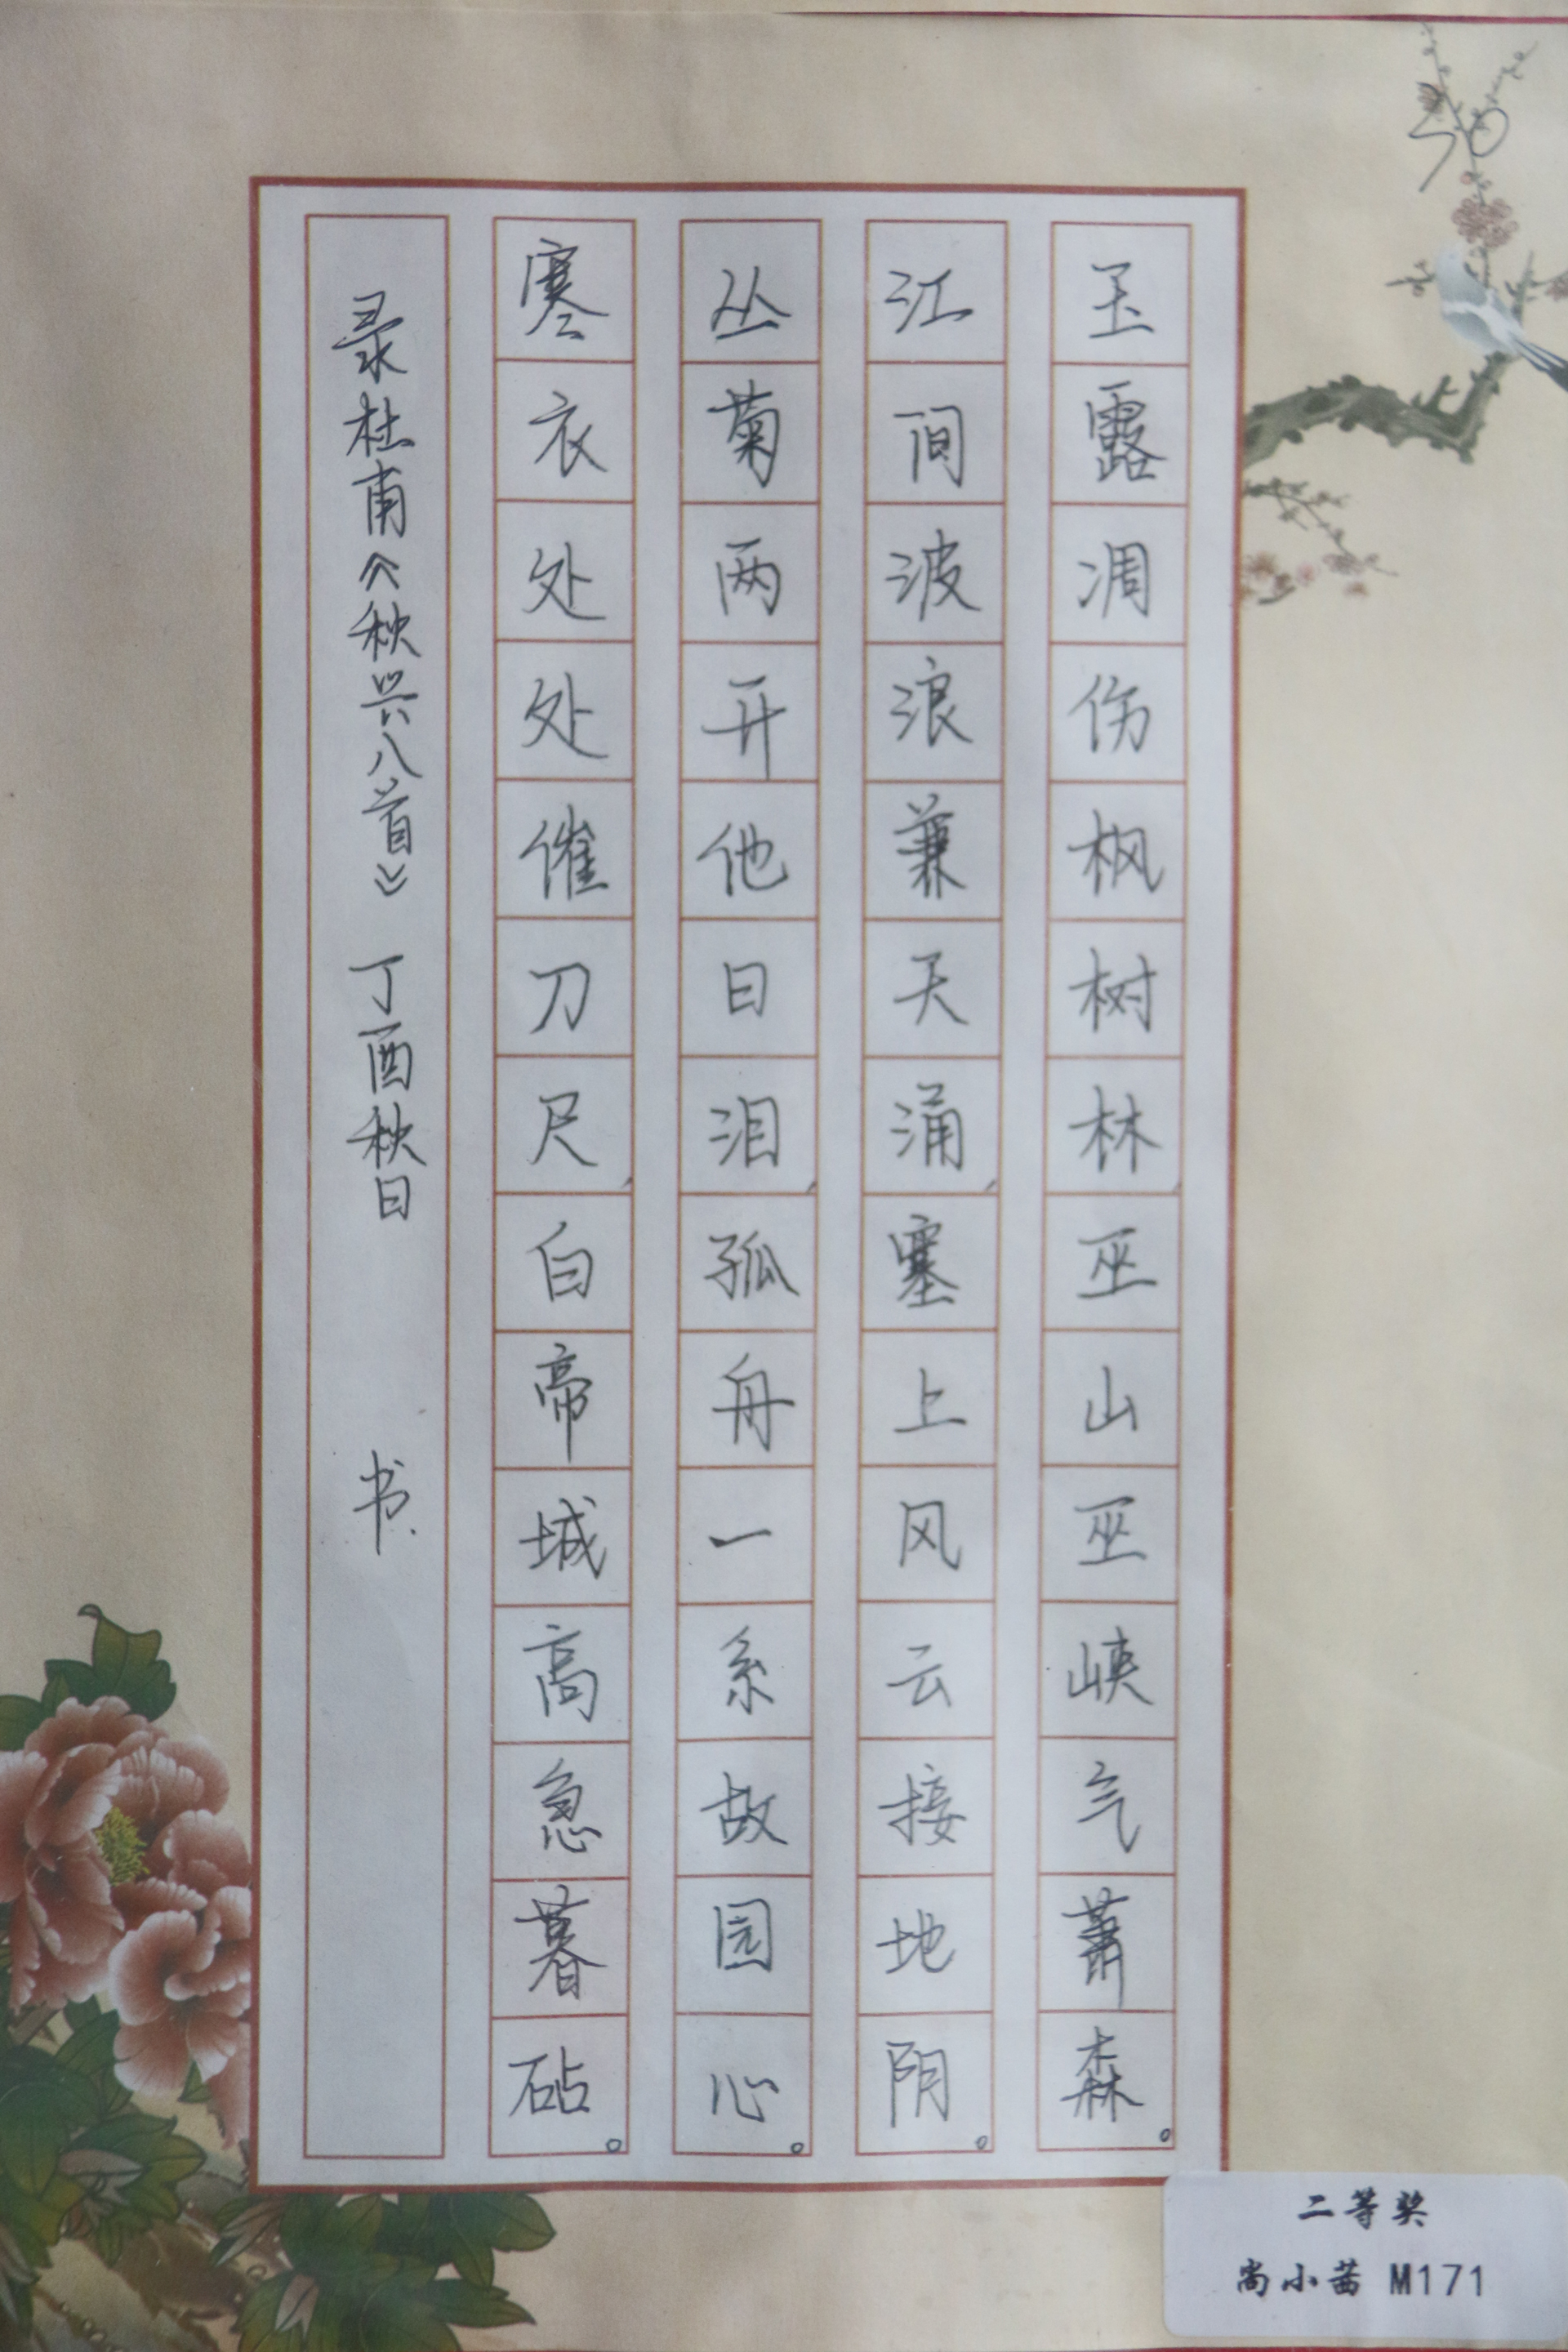 玉露凋伤枫树林,巫山巫峡气萧森。
江间波浪兼天涌,塞上风云接地阴。
丛菊两开他日泪,孤舟一系故园心。
寒衣处处催刀尺,白帝城高急暮砧。
录杜甫《秋兴八首》 丁酉秋日 书
50
二等奖
尚小茜 M171